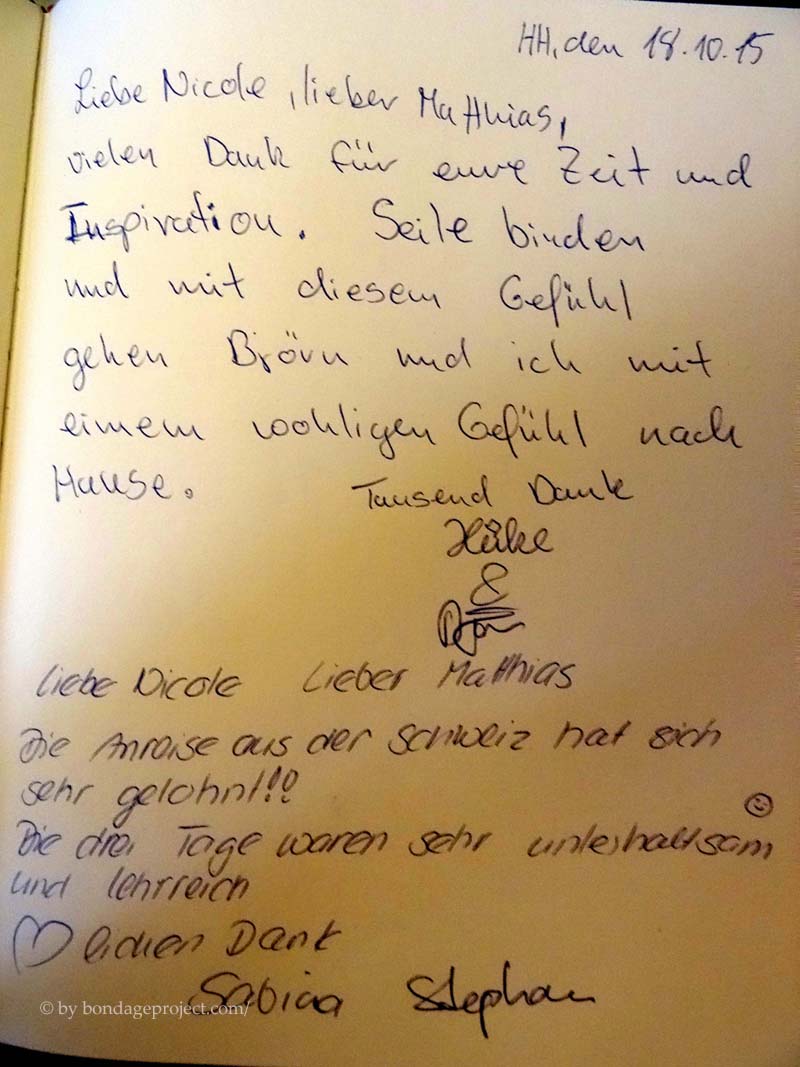 HH, den 18.10.15
Liebe Nicole, lieber Matthias,
vielen Dank für eure Zeit und
Inspiration. Seile binden
und mit diesem Gefühl
gehen Björn und ich mit
einem wohligen Gefühl nach
Hause. Tausend Dank
Heike
&
Björn
Liebe Nicole Lieber Matthias
Die Anreise aus der Schweiz hat sich
sehr gelohnt!!
Die drei Tage waren sehr unterhaltsam ☺
und lehrreich
♡lichen Dank
Sabina Stephan
© by bondageproject.com/